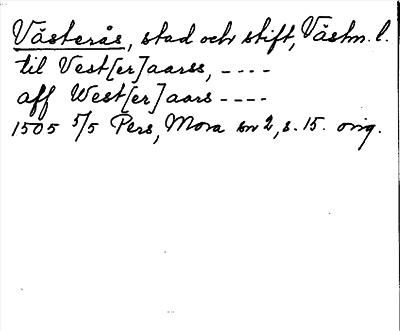 Västerås, stad och stift, Västm. l.
til Vest[er]aarss, ----
aff West[er]aars ----
1505 5/5 Pers, Mora sn 2, s. 15. orig.